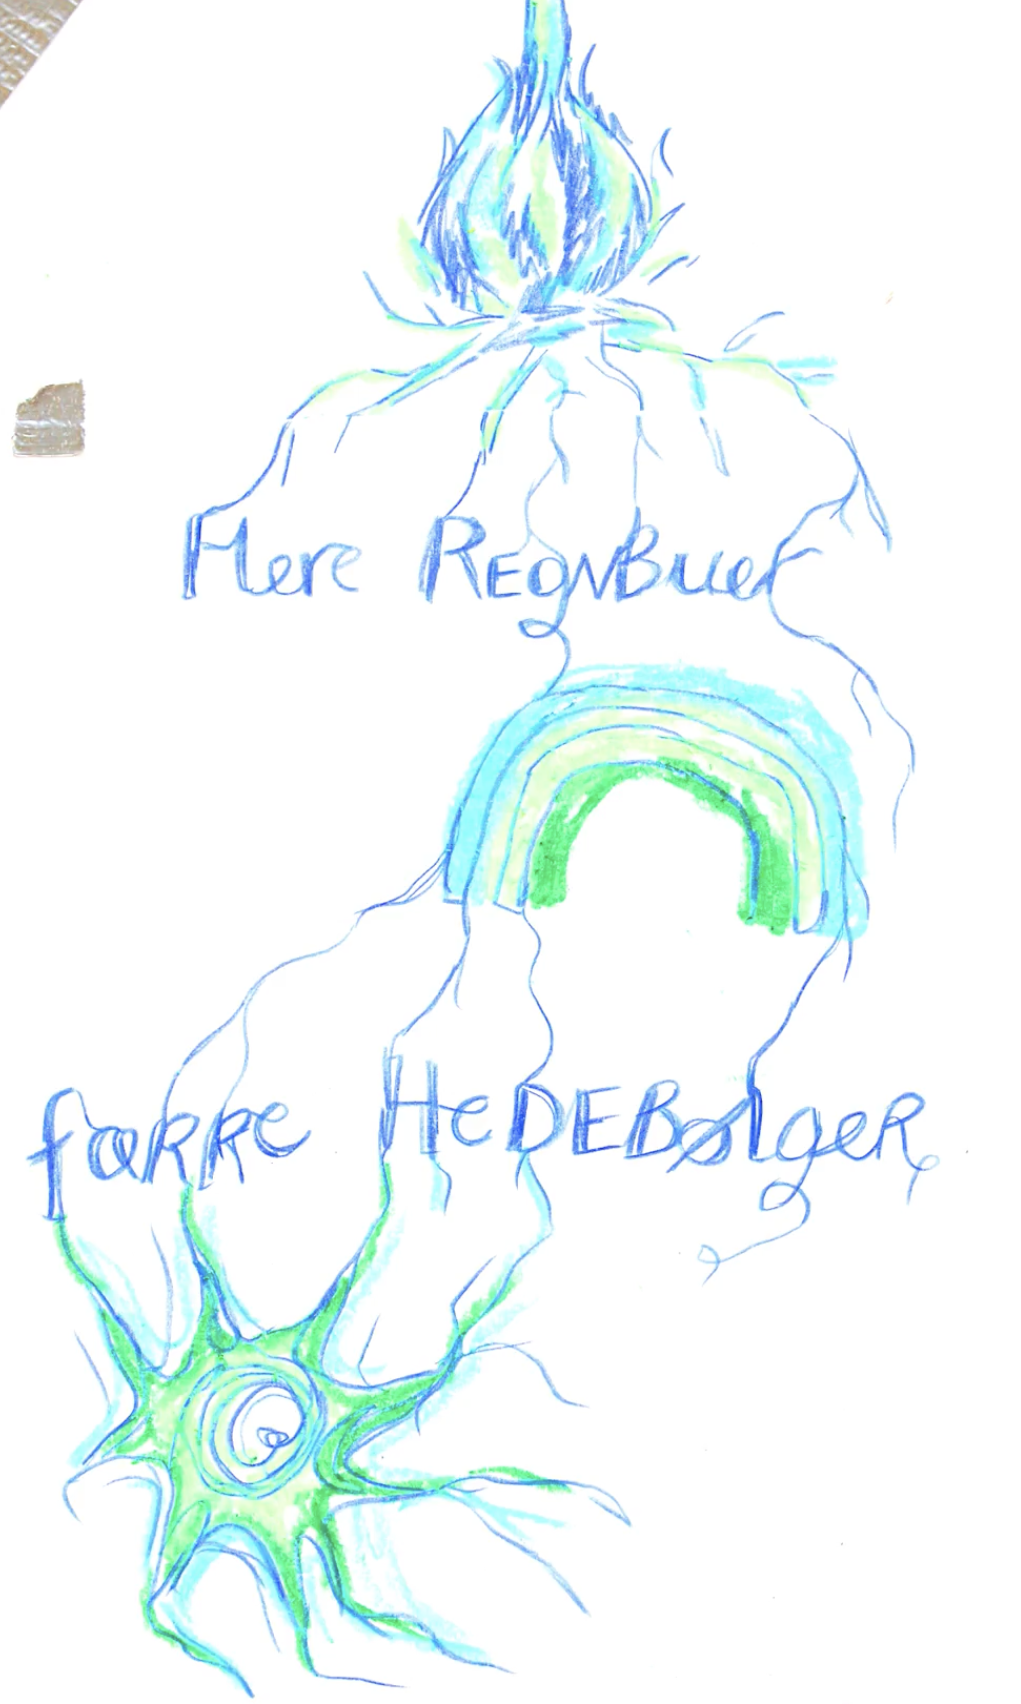 Flere REGNBuer
færre HeDEBølgeR